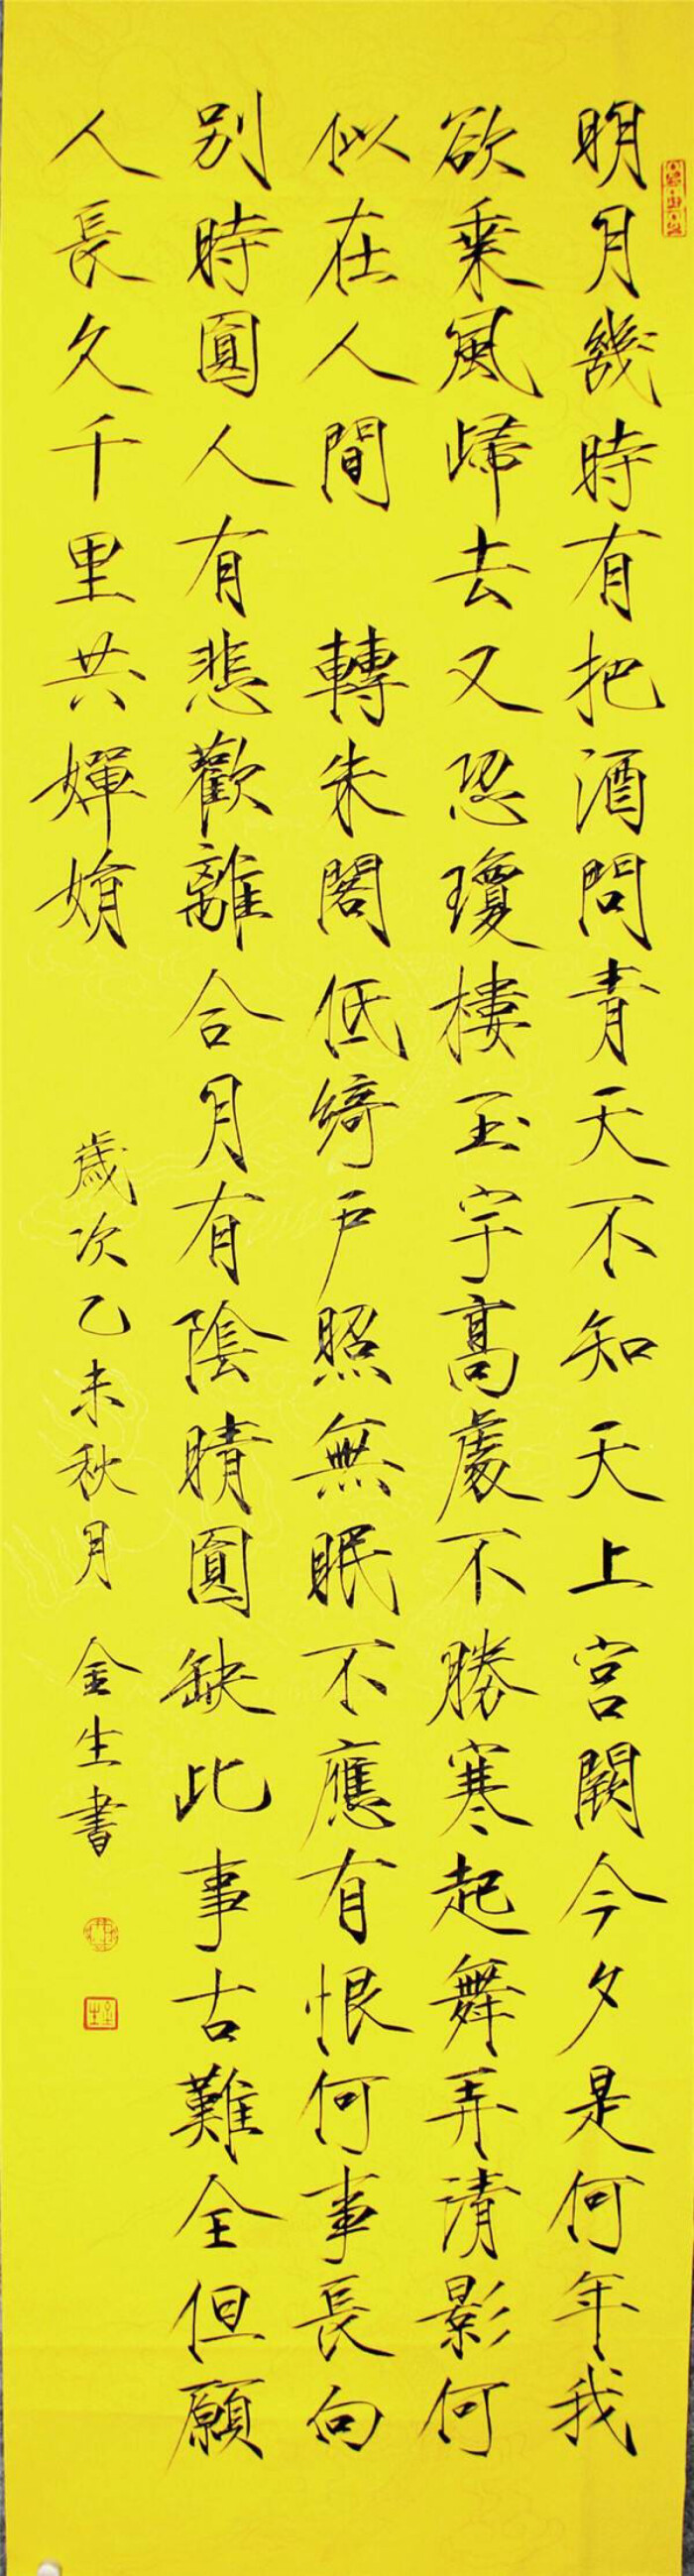 明月幾時有把酒問青天不知天上宮闕今夕是何年我
欲乘風歸去又恐瓊樓玉宇高處不勝寒起舞弄清影何
似在人間 轉朱閣低綺戶照無眠不應有恨何事長向
別時圓人有悲歡離合月有陰晴圓缺此事古難全但願
人長久千里共嬋娟
歲次乙未秋月 金生書